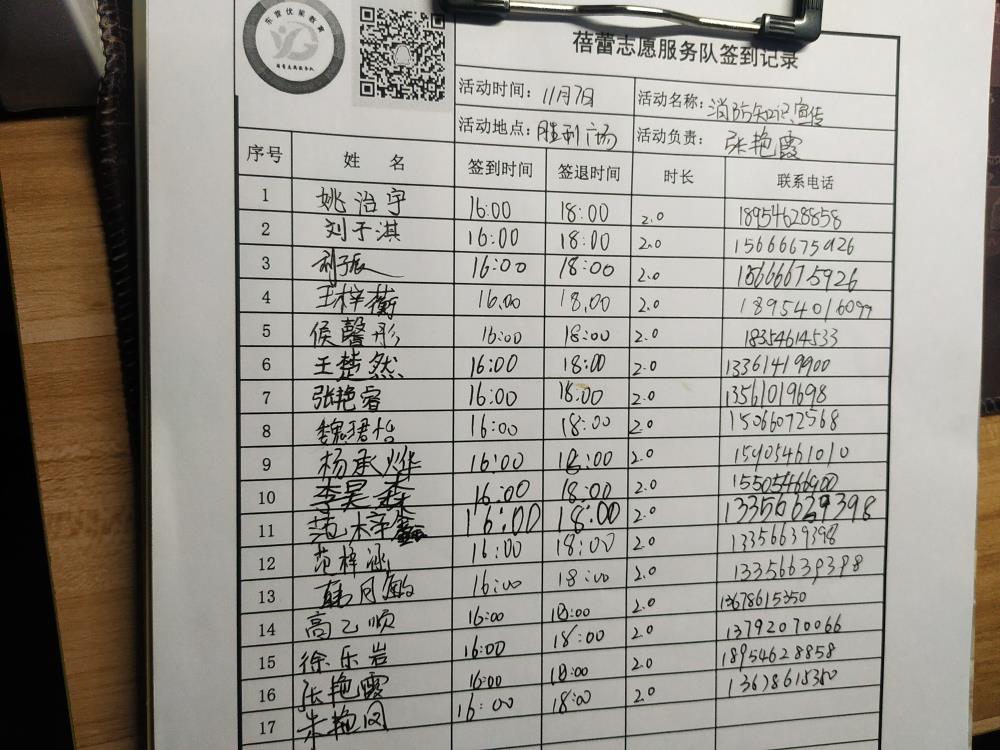 东营优能教育
蓓蕾志愿服务队签到记录
活动时间：11月7日 活动名称：消防知识宣传
活动地点：胜利广场 活动负责：张艳霞
序号 姓 名 签到时间 签退时间 时长 联系电话
1 姚治宇 16:00 18:00 2.0 18954628858
2 刘子淇 16:00 18:00 2.0 15666675926
3 刘子辰 16:00 18:00 2.0 15666675926
4 王梓蘅 16.00 18.00 2.0 18954016099
5 侯馨彤 16:00 18:00 2.0 18354614533
6 王楚然 16:00 18:00 2.0 13361419900
7 张艳睿 16:00 18:00 2.0 13561019698
8 魏珺怡 16:00 18:00 2.0 15066072568
9 杨承烨 16:00 18:00 2.0 15905461010
10 李昊森 16:00 18:00 2.0 15505466900
11 范梓鑫 16:00 18:00 2.0 13356639398
12 范梓涵 16:00 18:00 2.0 13356639398
13 韩月敏 16:00 18:00 2.0 13356639398
14 高乙顺 16:00 18:00 2.0 13678615350
15 徐乐岩 16:00 18:00 2.0 13792070066
16 张艳霞 16:00 18:00 2.0 18954628858
17 朱艳凤 16:00 18:00 2.0 13678615350